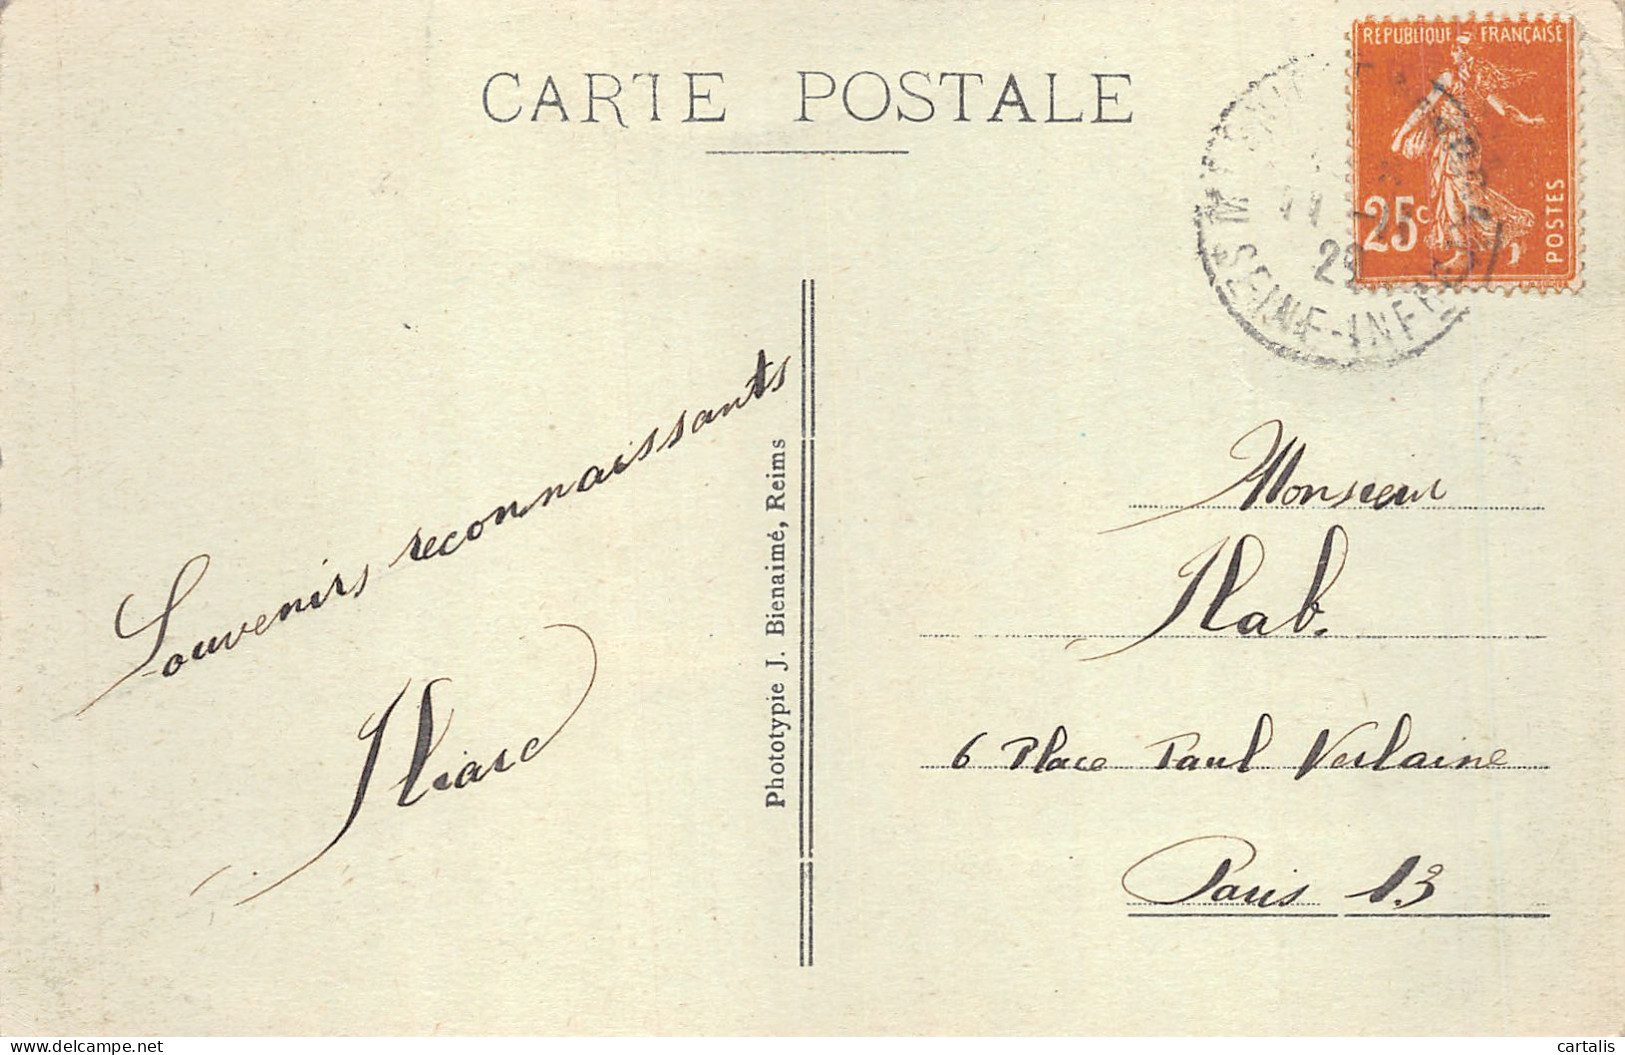 CARTE POSTALE
REPUBLIQUE FRANÇAISE
25c
POSTES
29
SEINE-INFRE
Souvenirs reconnaissants
Phototypie J. Bienaimé, Reims
Monsieur
6 Place Paul Verlaine
Paris 13
cartalis
delcampe.net